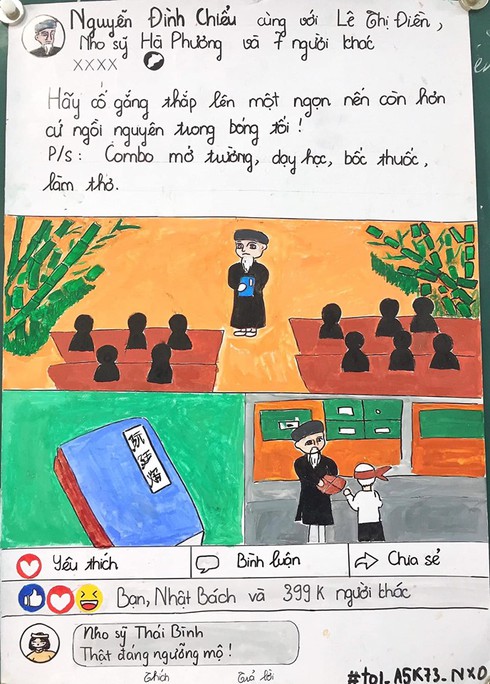 Nguyễn Đình Chiểu cùng với Lê Thị Điền,
Nho sỹ Hà Phương và 7 người khác
XXXX
Hãy cố gắng thắp lên một ngọn nến còn hơn
cứ ngồi nguyên trong bóng tối!
P/s: Combo mở trường, dạy học, bốc thuốc,
làm thơ.
Yêu thích
Bình luận
Chia sẻ
Bạn, Nhật Bách và 399K người khác
Nho sỹ Thái Bình
Thật đáng ngưỡng mộ!
Thích Trả lời
#to1_A5K73_NXO